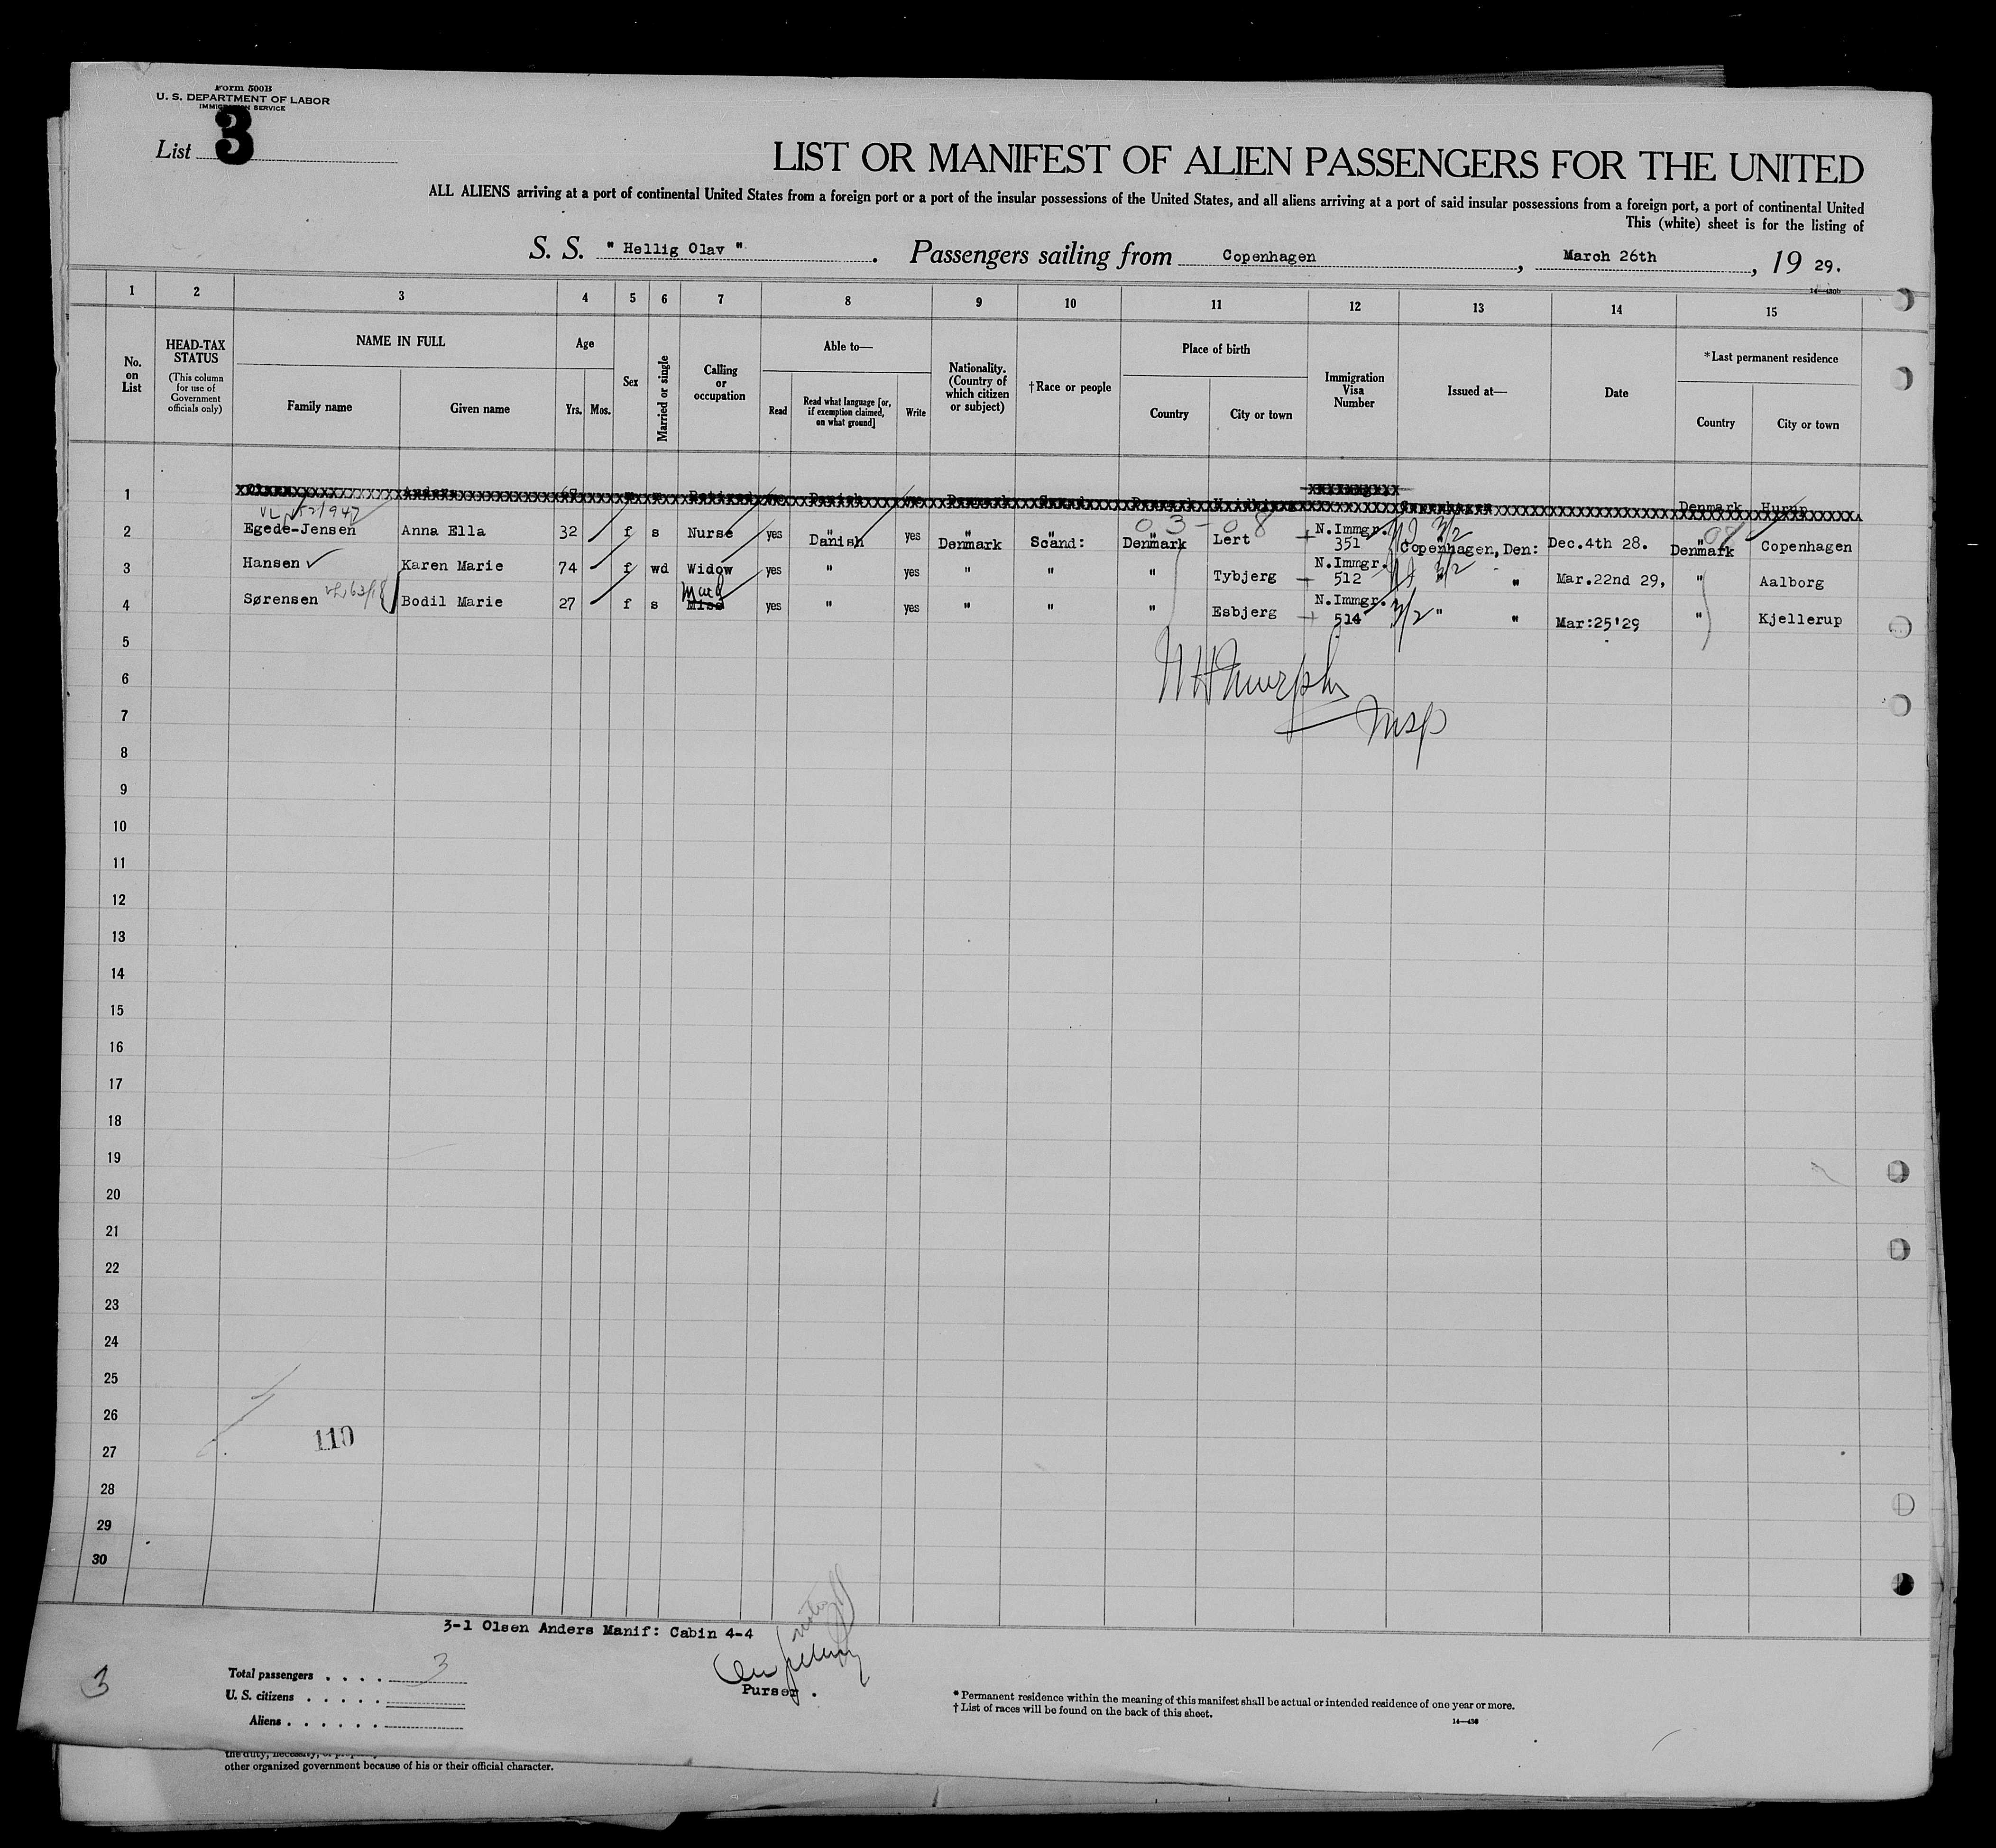 Form 500B
U. S. DEPARTMENT OF LABOR
IMMIGRATION SERVICE
List 3
LIST OR MANIFEST OF ALIEN PASSENGERS FOR THE UNITED
ALL ALIENS arriving at a port of continental United States from a foreign port or a port of the insular possessions of the United States, and all aliens arriving at a port of said insular possessions from a foreign port, a port of continental United
This (white) sheet is for the listing of
S. S. " Hellig Olav " . Passengers sailing from Copenhagen , March 26th , 19 29.
1 2 3 4 5 6 7 8 9 10 11 12 13 14 15
No. on List
HEAD-TAX STATUS
(This column for use of Government officials only)
NAME IN FULL
Family name Given name
Age
Yrs. Mos.
Sex
Married or single
Calling or occupation
Able to—
Read Read what language [or, if exemption claimed, on what ground] Write
Nationality. (Country of which citizen or subject)
†Race or people
Place of birth
Country City or town
Immigration Visa Number
Issued at—
Date
*Last permanent residence
Country City or town
1 Denmark Hurup
03-08
2 Egede-Jensen Anna Ella 32 f s Nurse yes " Danish yes " Denmark " Scand: " Denmark Lert N.Immgr. 351 3/2 Copenhagen, Den: Dec.4th 28. " Denmark Copenhagen
3 Hansen Karen Marie 74 f wd Widow yes " yes " " " Tybjerg N.Immgr. 512 3/2 " " Mar.22nd 29, " Aalborg
4 Sørensen Bodil Marie 27 f s Maid Miss yes " yes " " " Esbjerg N.Immgr. 514 3/2 " " Mar:25'29 " Kjellerup
5
6
7
8
9
10
11
12
13
14
15
16
17
18
19
20
21
22
23
24
25
26
27
28
29
30
110
3-1 Olsen Anders Manif: Cabin 4-4
Purser.
3
Total passengers . . . . 3
U. S. citizens . . . . .
Aliens . . . . . .
* Permanent residence within the meaning of this manifest shall be actual or intended residence of one year or more.
† List of races will be found on the back of this sheet.
14—430
other organized government because of his or their official character.